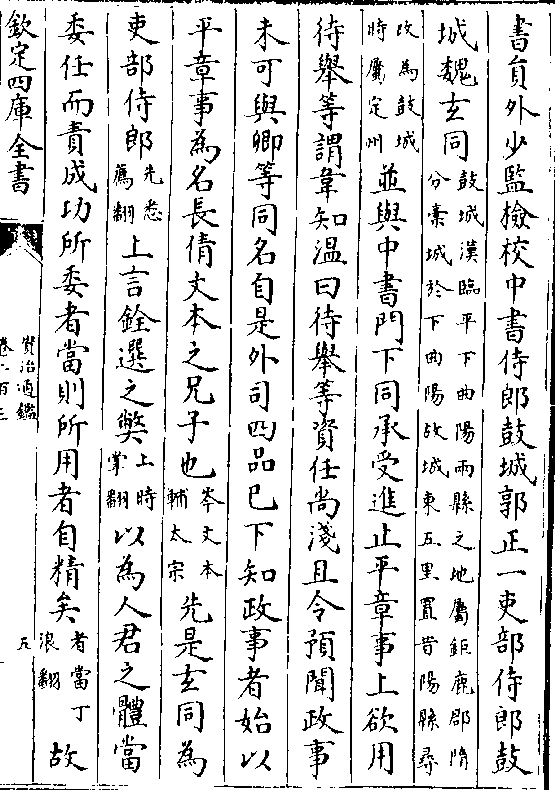 書員外少監檢校中書侍郎鼓城郭正一吏部侍郎鼓
城魏玄同鼓城漢臨平下曲陽兩縣之地屬鉅鹿郡隋
分藁城於下曲陽故城東五里置昔陽縣尋
改為鼓城
時屬定州並與中書門下同承受進止平章事上欲用
待舉等謂韋知溫曰待舉等資任尚淺且令預聞政事
未可與卿等同名自是外司四品已下知政事者始以
平章事為名長倩文本之兄子也岑文本
輔太宗先是玄同為
吏部侍郎先悉
薦翻上言銓選之弊上時
掌翻以為人君之體當
委任而責成功所委者當則所用者自精矣者當丁
浪翻故
欽定四庫全書
資治通鑑
卷二百三
五